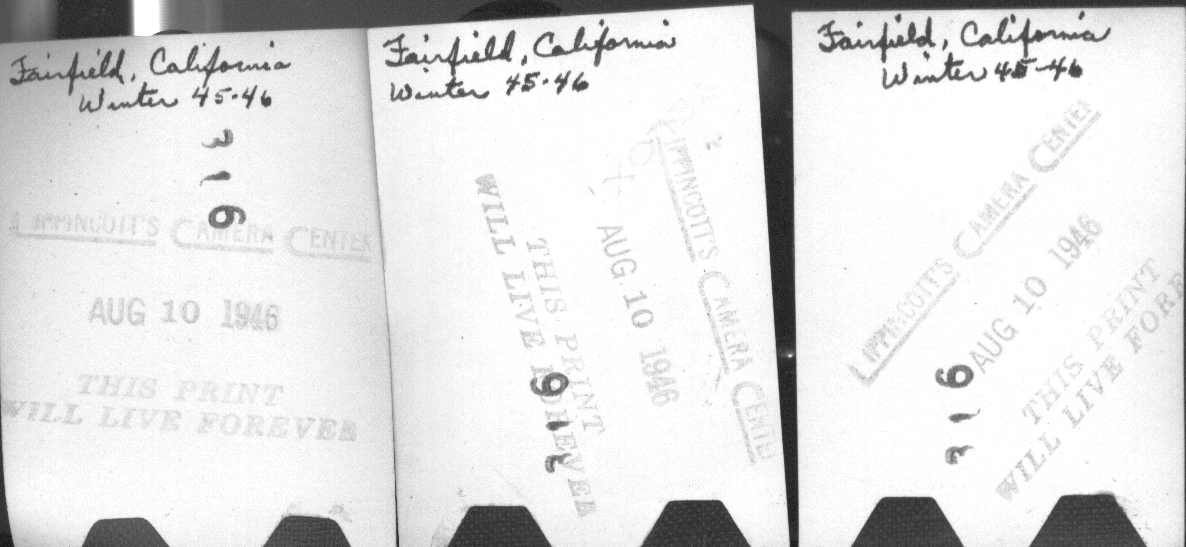 Fairfield, California
Winter 45-46
316
LIPPINCOTT'S CAMERA CENTER
AUG 10 1946
THIS PRINT
WILL LIVE FOREVER
Fairfield, California
Winter 45-46
LIPPINCOTT'S CAMERA CENTER
AUG 10 1946
THIS PRINT
WILL LIVE FOREVER
316
Fairfield, California
Winter 45-46
LIPPINCOTT'S CAMERA CENTER
AUG 10 1946
THIS PRINT
WILL LIVE FORE
316